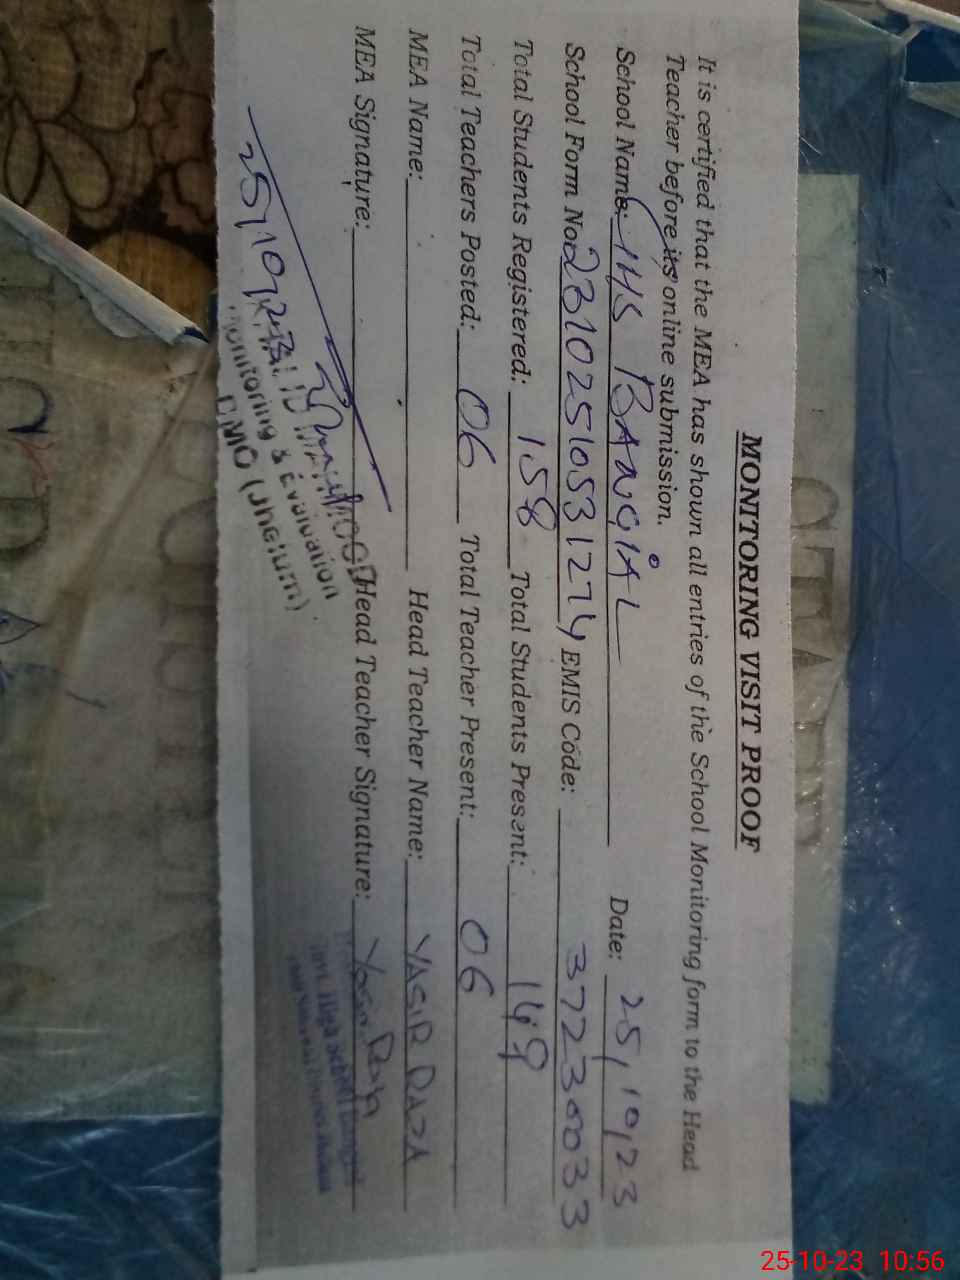 MONITORING VISIT PROOF
It is certified that the MEA has shown all entries of the School Monitoring form to the Head
Teacher before its online submission.
School Name: GHS BANGIAL Date: 25/10/23
School Form No: 23102510531274 EMIS Code: 37230033
Total Students Registered: 158 Total Students Present: 149
Total Teachers Posted: 06 Total Teacher Present: 06
MEA Name: Head Teacher Name: YASIR RAZA
MEA Signature: Head Teacher Signature: Yasir Raza
25/10/23
KHALID MAHMOOD
Monitoring & Evaluation
DMO (Jhelum)
High School
25-10-23 10:56